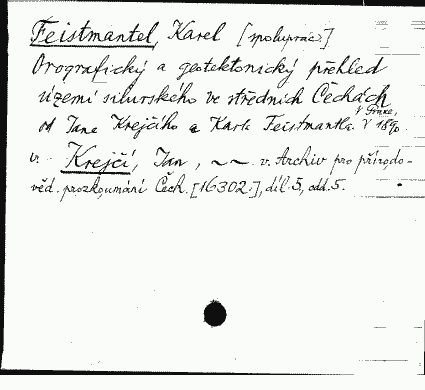 Feistmantel, Karel [spoluprac.]
Orografický a geotektonický přehled
území silurského ve středních Čechách
od Jana Krejčího a Karla Feistmantla. V Praze, 1890.
v. Krejčí, Jan, ~~ v. Archiv pro přírodo-
věd. prozkoumání Čech. [16302.], díl 5, odd. 5.